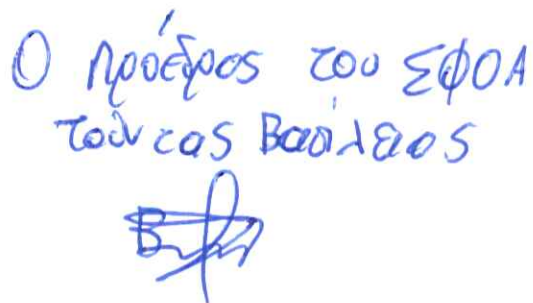 Ο Πρόεδρος του ΣΦΟΑ
Τούντας Βασίλειος